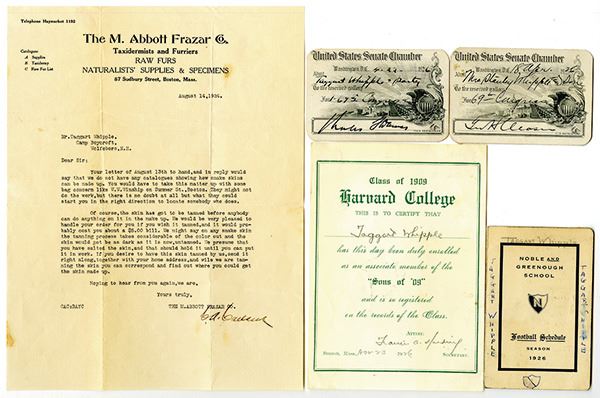 Telephone Haymarket 1192
Catalogues
A Supplies
B Taxidermy
C Raw Fur List
The M. Abbott Frazar Co.
Taxidermists and Furriers
RAW FURS
NATURALISTS' SUPPLIES & SPECIMENS
87 Sudbury Street, Boston, Mass.
August 14,1926.
Mr.Taggart Whipple,
Camp
Wolfeboro,N.H.
Dear Sir:
Your letter of August 13th to hand,and in reply would
say that we do not have any catalogues showing how snake skins
can be made up. You would have to take this matter up with some
bag concern like W.W.Winship on Summer St.,Boston. They might not
do the work,but there is no doubt at all but what they could
start you in the right direction to locate somebody who does.
Of course,the skin has got to be tanned before anybody
can do anything on it in the make up. We would be very pleased to
handle your order for you if you wish it tanned,and it would pro-
bably cost you about a $1.00 bill. We might say on any snake skin
the tanning process takes considerable of the color out and the
skin would not be as dark as it is now,untanned. We presume that
you have salted the skin,and that should hold it until you can put
it in work. If you desire to have this skin tanned by us,send it
right along,together with your home address,and while we are tan-
ning the skin you can correspond and find out where you could get
the skin made up.
Hoping to hear from you again,we are,
Yours truly,
THE M.ABBOTT FRAZAR Co.
CAC:BAYC
United States Senate Chamber.
Washington, D.C.
Admit
Taggart Whipple & Party
To the reserved gallery
69th Congress
United States Senate Chamber.
Washington, D.C. 18 April 26
Admit
To the reserved gallery
69th Congress
Class of 1909
Harvard College
THIS IS TO CERTIFY THAT
Taggart Whipple
has this day been duly enrolled
as an associate member of the
"Sons of '09"
and is so registered
on the records of the Class.
ATTEST:
BOSTON, MASS. Nov 23 1926
SECRETARY.
TAGGART WHIPPLE
NOBLE AND
GREENOUGH
SCHOOL
N
Football Schedule
SEASON
1926
TAGGART WHIPPLE